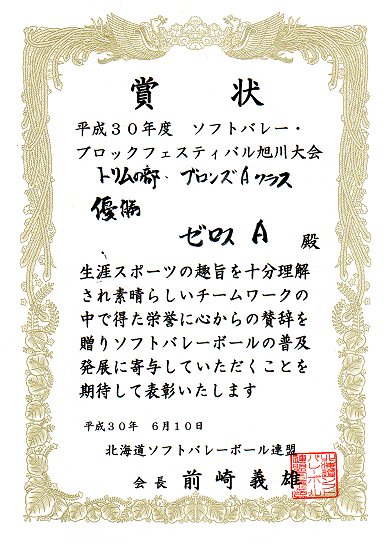 賞状
平成３０年度　ソフトバレー・
ブロックフェスティバル旭川大会
トリムの部、ブロンズAクラス
優勝
ゼロス A 殿
生涯スポーツの趣旨を十分理解
され素晴らしいチームワークの
中で得た栄誉に心からの賛辞を
贈りソフトバレーボールの普及
発展に寄与していただくことを
期待して表彰いたします
平成30年　6月10日
北海道ソフトバレーボール連盟
会長　前崎義雄